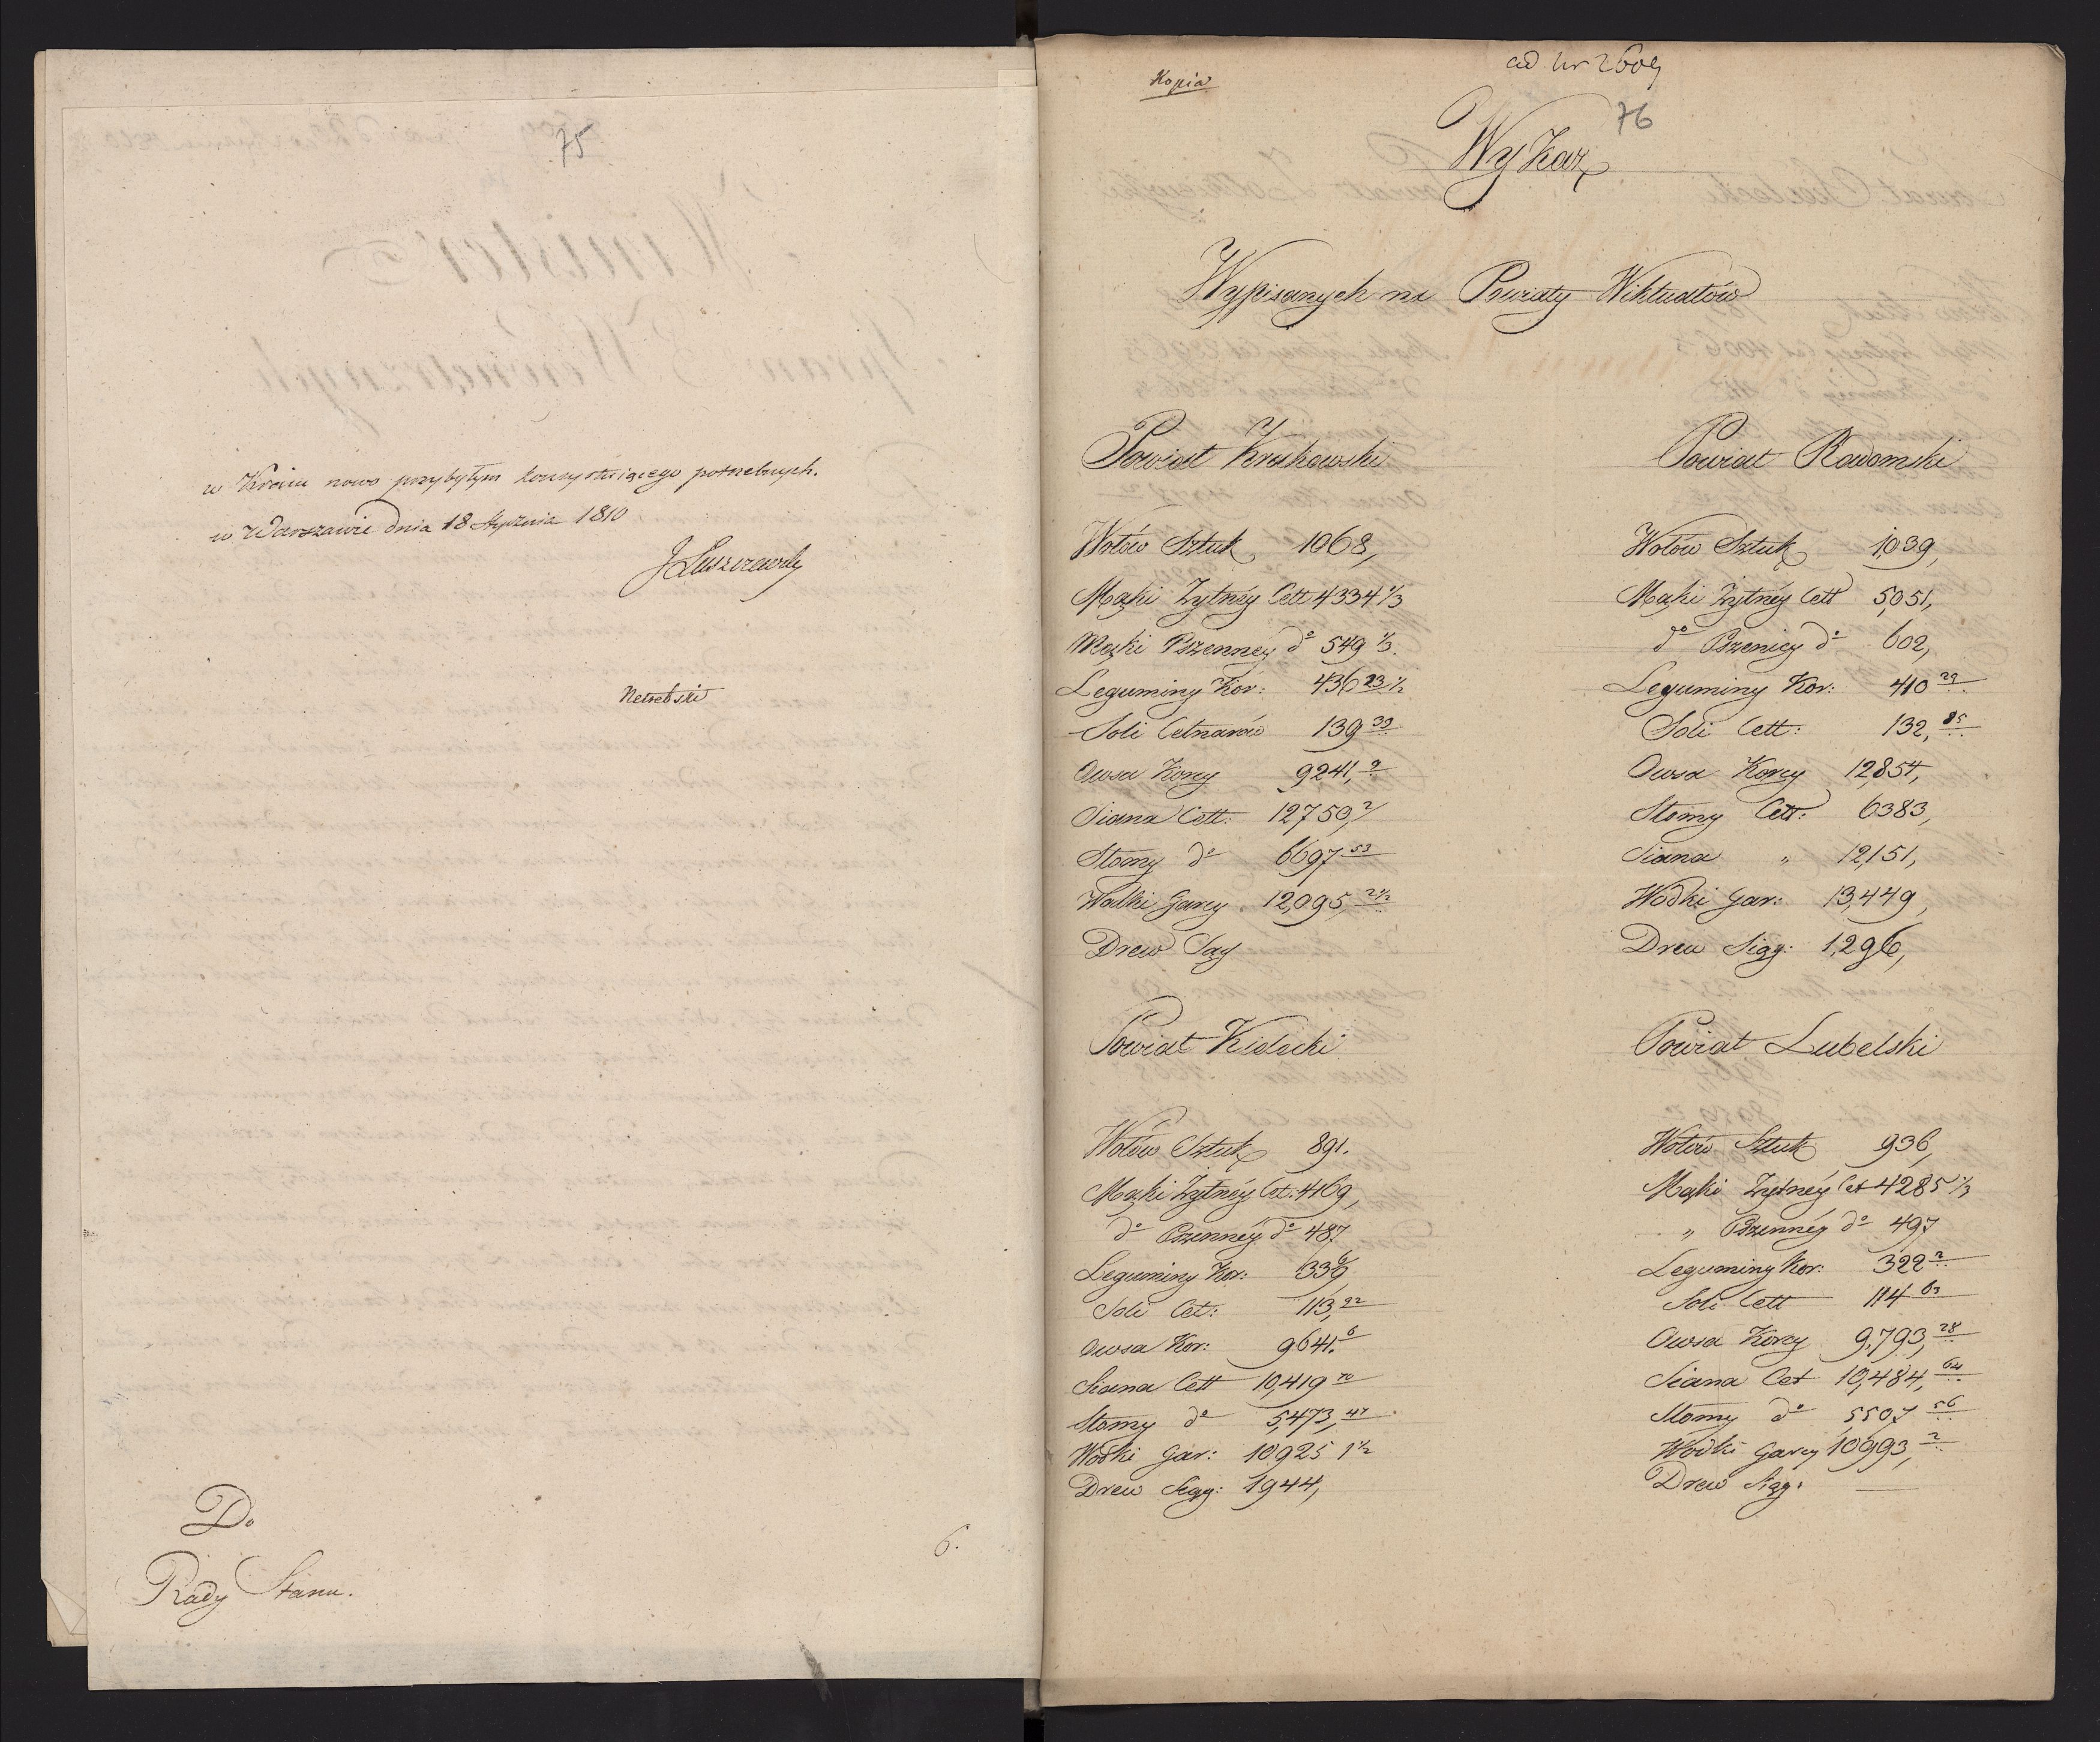 75
w Kraiu nowo przybyłym konsystuiącego potrzebnych.
w Warszawie dnia 18 Stycznia 1810
J Łuszczewsky
Netrebski
Do
Rady Stanu.
6.
Kopia
ad Nr 2609
76
Wykaz
Wypisanych na Powiaty Wiktuałów
Powiat Krakowski
Wołów Sztuk 1068,
Mąki Żytnéy Cett 4334 1/3
Mąki Pszenney do 549 1/3.
Leguminy Kor: 436 23 1/2
Soli Cetnarów 139 39
Owsa Korcy 9241, 9
Siana Cett: 12750, 21
Słomy do 6697 53
Wodki Garcy 12,095, 2 1/2
Drew Sąg
Powiat Radomski
Wołów Sztuk 1,039,
Mąki Żytnéy Cett 5,051,
do Pszenicy do 602,
Leguminy Kor: 410 29
Soli Cett: 132, 85
Owsa Korcy 12,854,
Słomy Cett: 6383,
Siana " 12,151,
Wodki Gar: 13,449,
Drew Siąg: 1,296,
Powiat Kielecki
Wołów Sztuk 891.
Mąki Żytnéy Cet: 4169,
do Pszennéy do 487
Leguminy Kor: 339 6
Soli Cet: 113, 92
Owsa Kor: 9641. 6
Siana Cett 10,419 70
Słomy do 5,473, 47
Wodki Gar: 10925 1 1/2
Drew Siąg: 1944,
Powiat Lubelski
Wołów Sztuk 936,
Mąki Żytnéy Cet 4285 1/3
" Pszennéy do 497
Leguminy Kor: 322 2
Soli Cett 114 63
Owsa Korcy 9,793, 28
Siana Cet 10,484, 64
Słomy do 5,507 56
Wodki Garcy 10993, 2
Drew Siąg: —